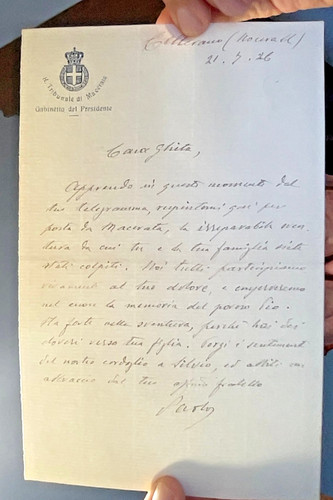 R. Tribunale di Macerata
Gabinetto del Presidente
(Macerata)
21. 7. 26
Cara Ghita,
Apprendo in questo momento dal
tuo telegramma, respintomi qui per
posta da Macerata, la irreparabile sven
tura da cui tu e la tua famiglia siete
stati colpiti. Noi tutti partecipiamo
vivamente al tuo dolore, e conserveremo
nel cuore la memoria del povero Pio.
Sta forte nella sventura, perché hai dei
doveri verso tua figlia. Porgi i sentimenti
del nostro cordoglio a Silvio, ed abbiti un
abbraccio dal tuo fratello
Paolo